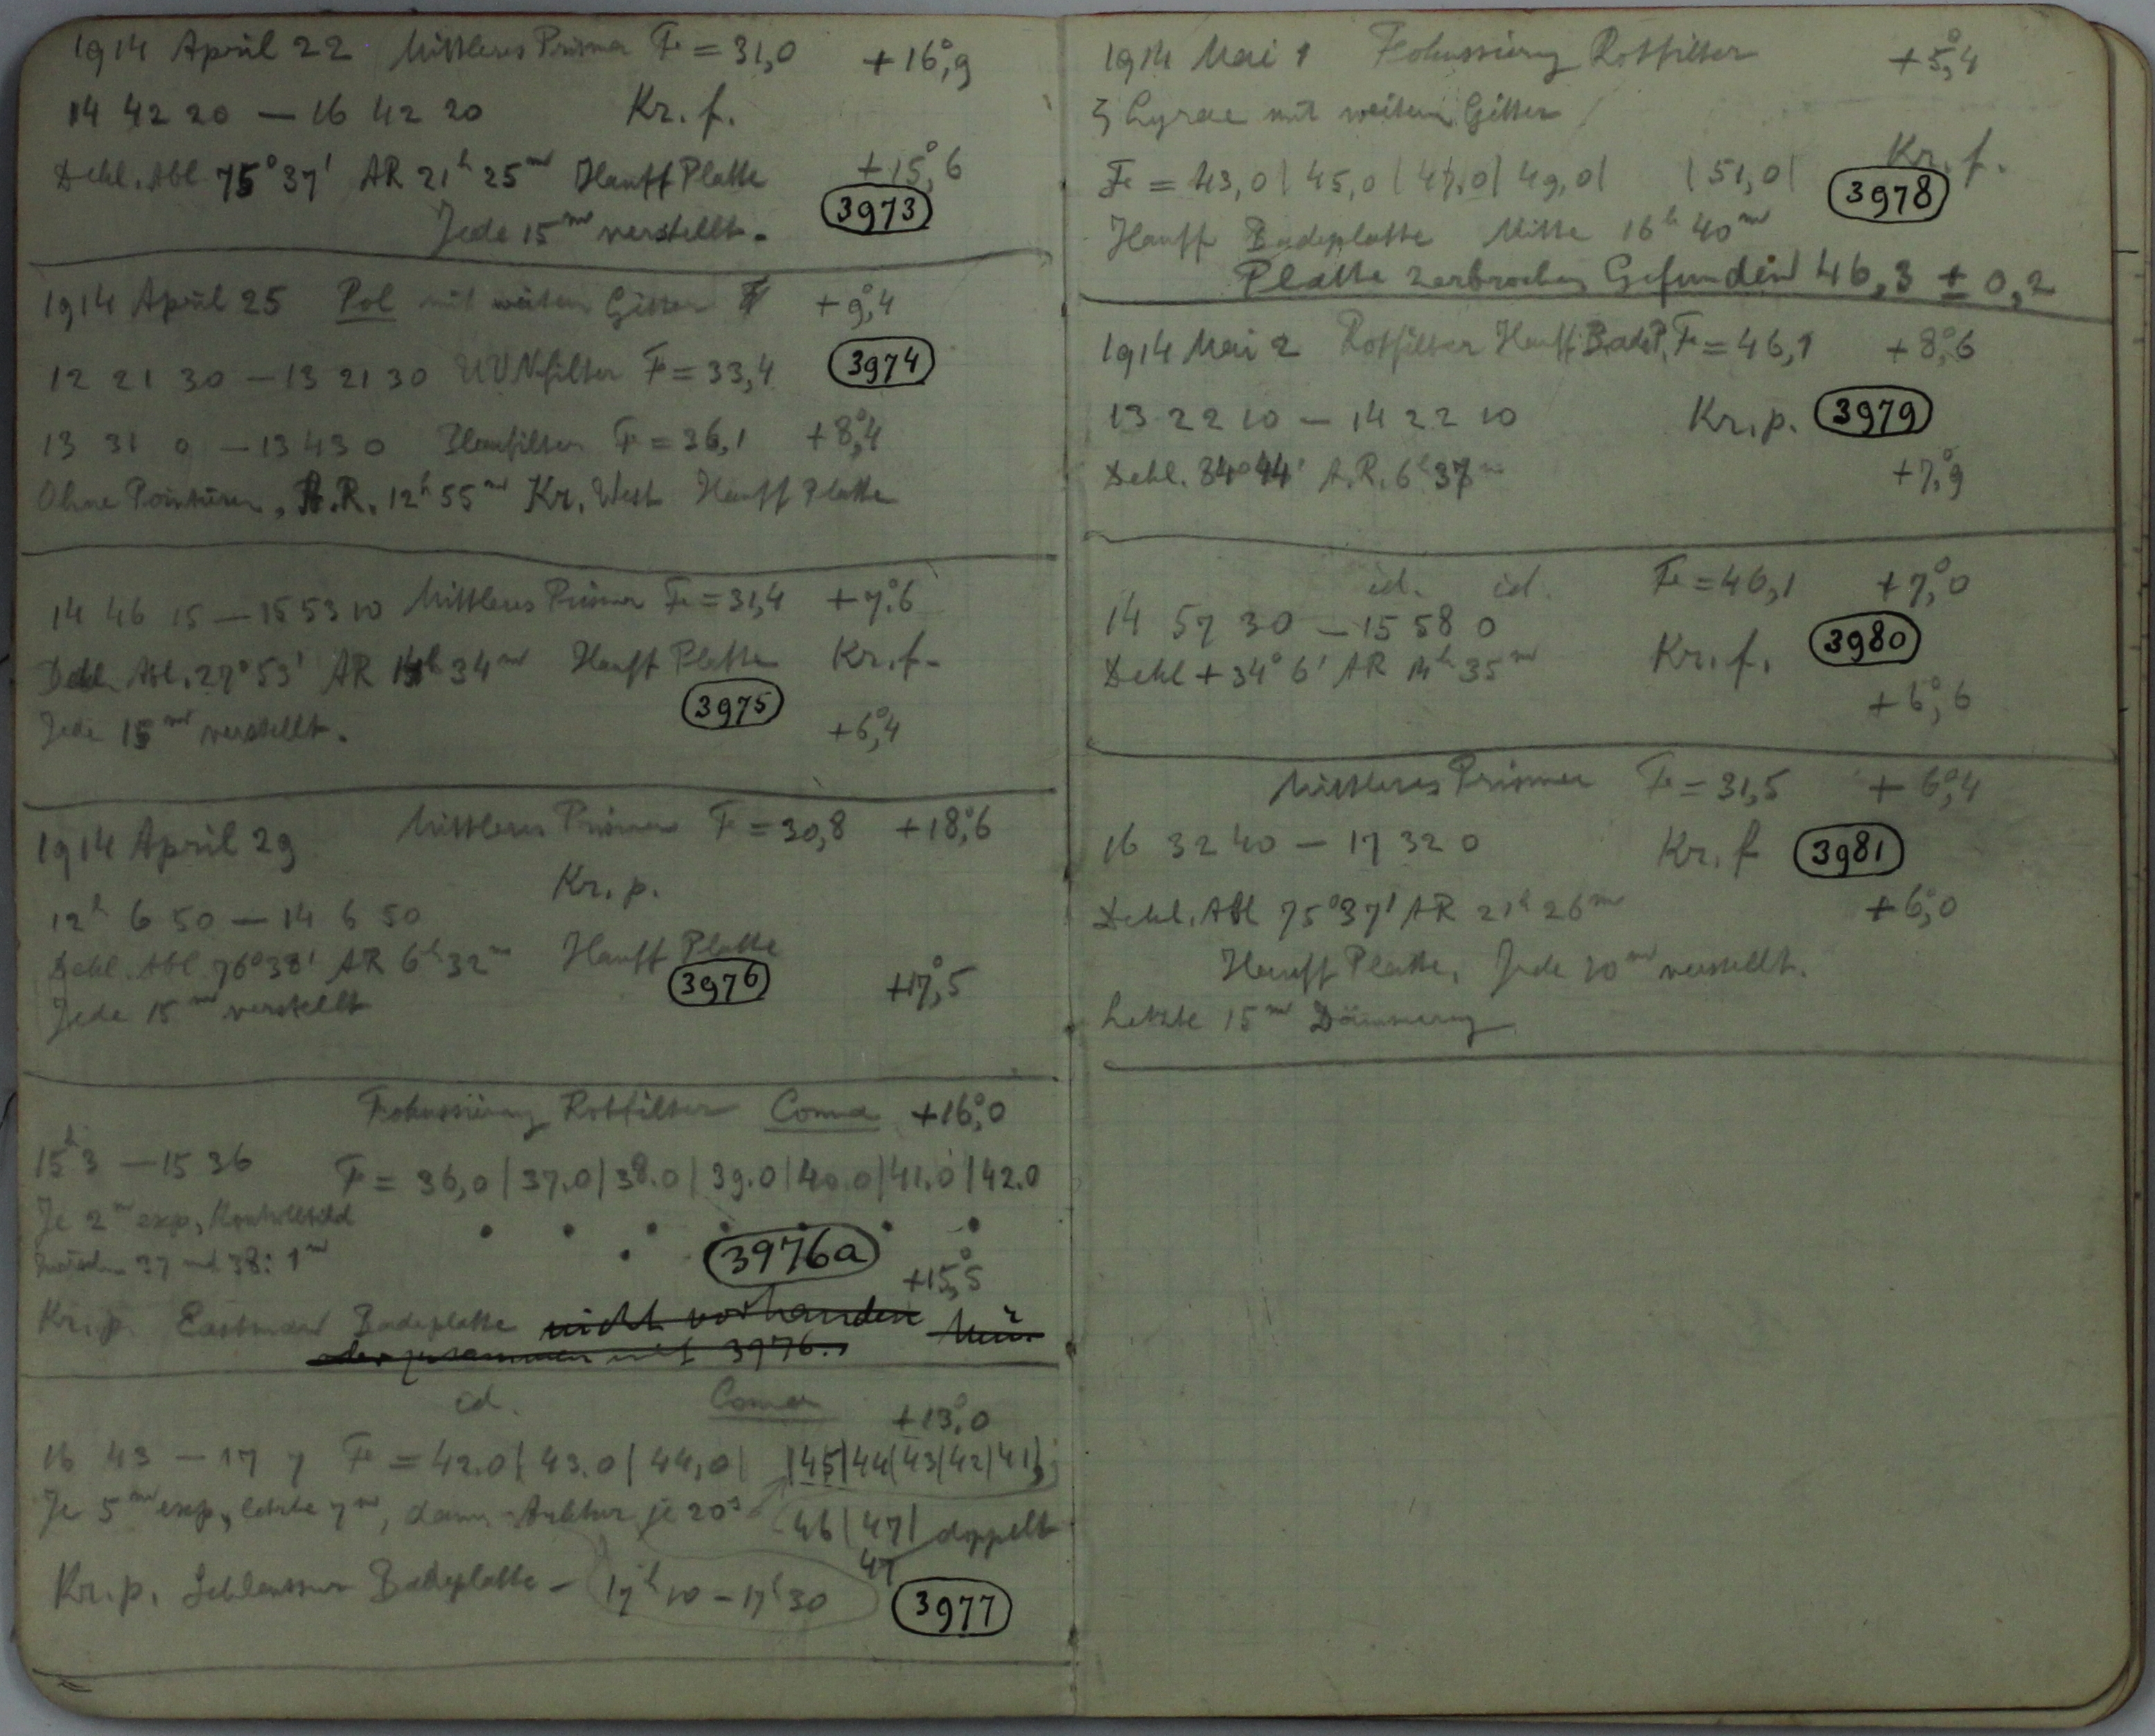 1914 April 22 Mittleres Prisma F = 31,0 +16°,9
14 42 20 — 16 42 20 Kr. f.
Dekl. Abl 75°37' AR 21h 25m Hauff Platte +15°,6
Jede 15m verstellt. 3973
1914 April 25 Pol mit weitem Gitter +9°,4
12 21 30 — 13 21 30 UV Filter F = 33,4 3974
13 31 0 — 13 43 0 F = 36,1 +8°,4
Ohne Pointieren, A.R. 12h 55m Kr. West Hauff Platte
14 46 15 — 15 53 10 Mittleres Prisma F = 31,4 +7°,6
Dekl. Abl. 27°53' AR 34m Hauff Platte Kr. f.
3975
Jede 15m verstellt. +6°,4
1914 April 29 Mittleres Prisma F = 30,8 +18°,6
Kr. p.
12h 6 50 — 14 6 50
Dekl. Abl. 76°38' AR 6h 32m Hauff Platte
3976 +17°,5
Jede 15m verstellt
Fokussierung Rotfilter Coma +16°,0
15h 3 — 15 36 F = 36,0 | 37.0 | 38.0 | 39.0 | 40.0 | 41.0 | 42.0
Je 2m exp, Kontrollbild
zwischen 37 und 38: 1m 3976a +15°,5
Kr. p. Eastman Badeplatte nicht vorhanden
oder zusammen mit 3976.
id. Coma +13°,0
16 43 — 17 7 F = 42.0 | 43.0 | 44,0 | | 45 | 44 | 43 | 42 | 41 |
Je 5m exp, letzte 7m, dann Arktur je 20s 46 | 47 | doppelt
47
Kr. p. Schleussner Badeplatte — 17h 10 — 17h 30 3977
1914 Mai 1 Fokussierung Rotfilter +5°,4
ζ Lyrae mit weitem Gitter
Kr. f.
F = 43,0 | 45,0 | 47,0 | 49,0 | | 51,0 | 3978
Hauff Badeplatte Mitte 16h 40m
Platte zerbrochen Gefunden 46,3 ± 0,2
1914 Mai 2 Rotfilter Hauff Bade P. F = 46,1 +8°,6
13 22 10 — 14 22 10 Kr. p. 3979
Dekl. 84°44' A.R. 6h 37m +7°,9
id. id. F = 46,1 +7°,0
14 57 30 — 15 58 0
Kr. f. 3980
Dekl + 34° 6' AR 14h 35m
+6°,6
Mittleres Prisma F = 31,5 +6°,4
16 32 40 — 17 32 0 Kr. f 3981
Dekl. Abl 75°37' AR 21h 26m +6°,0
Hauff Platte, Jede 10m verstellt.
Letzte 15m Dämmerung